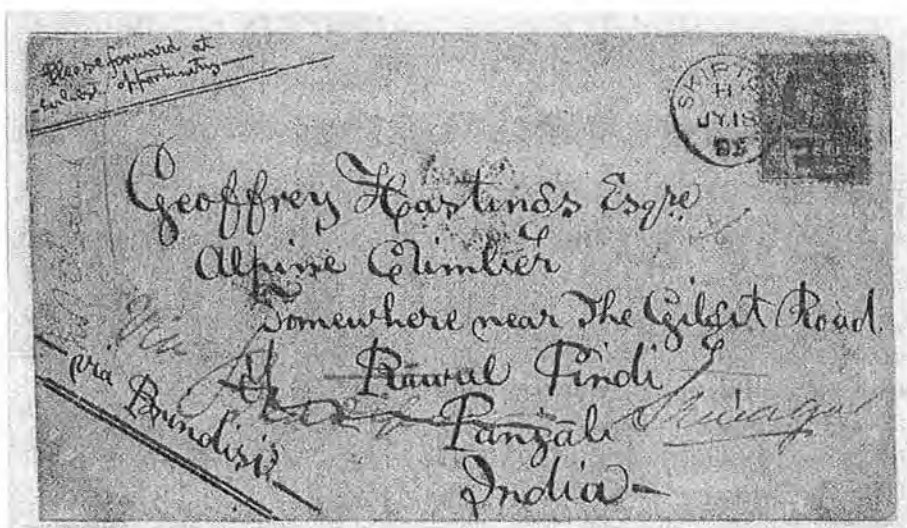 Please forward at
earliest opportunity
SKIPTON
H
JY 18
95
Geoffrey Hastings Esqre
Alpine Climber
Somewhere near The Gilgit Road.
Rawal Pindi
Panjab
India
via Brindisi
Via
Srinagar